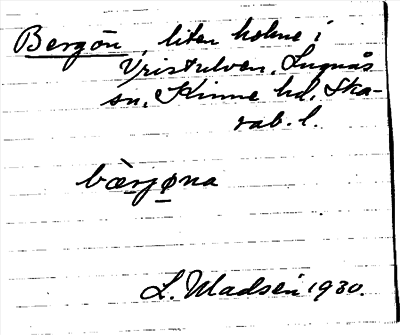 Bergön, liten holme i
Vristulven, Lugnås
sn, Kinne hd, Ska-
rab. l.
bærjøna
L. Madsen 1930.